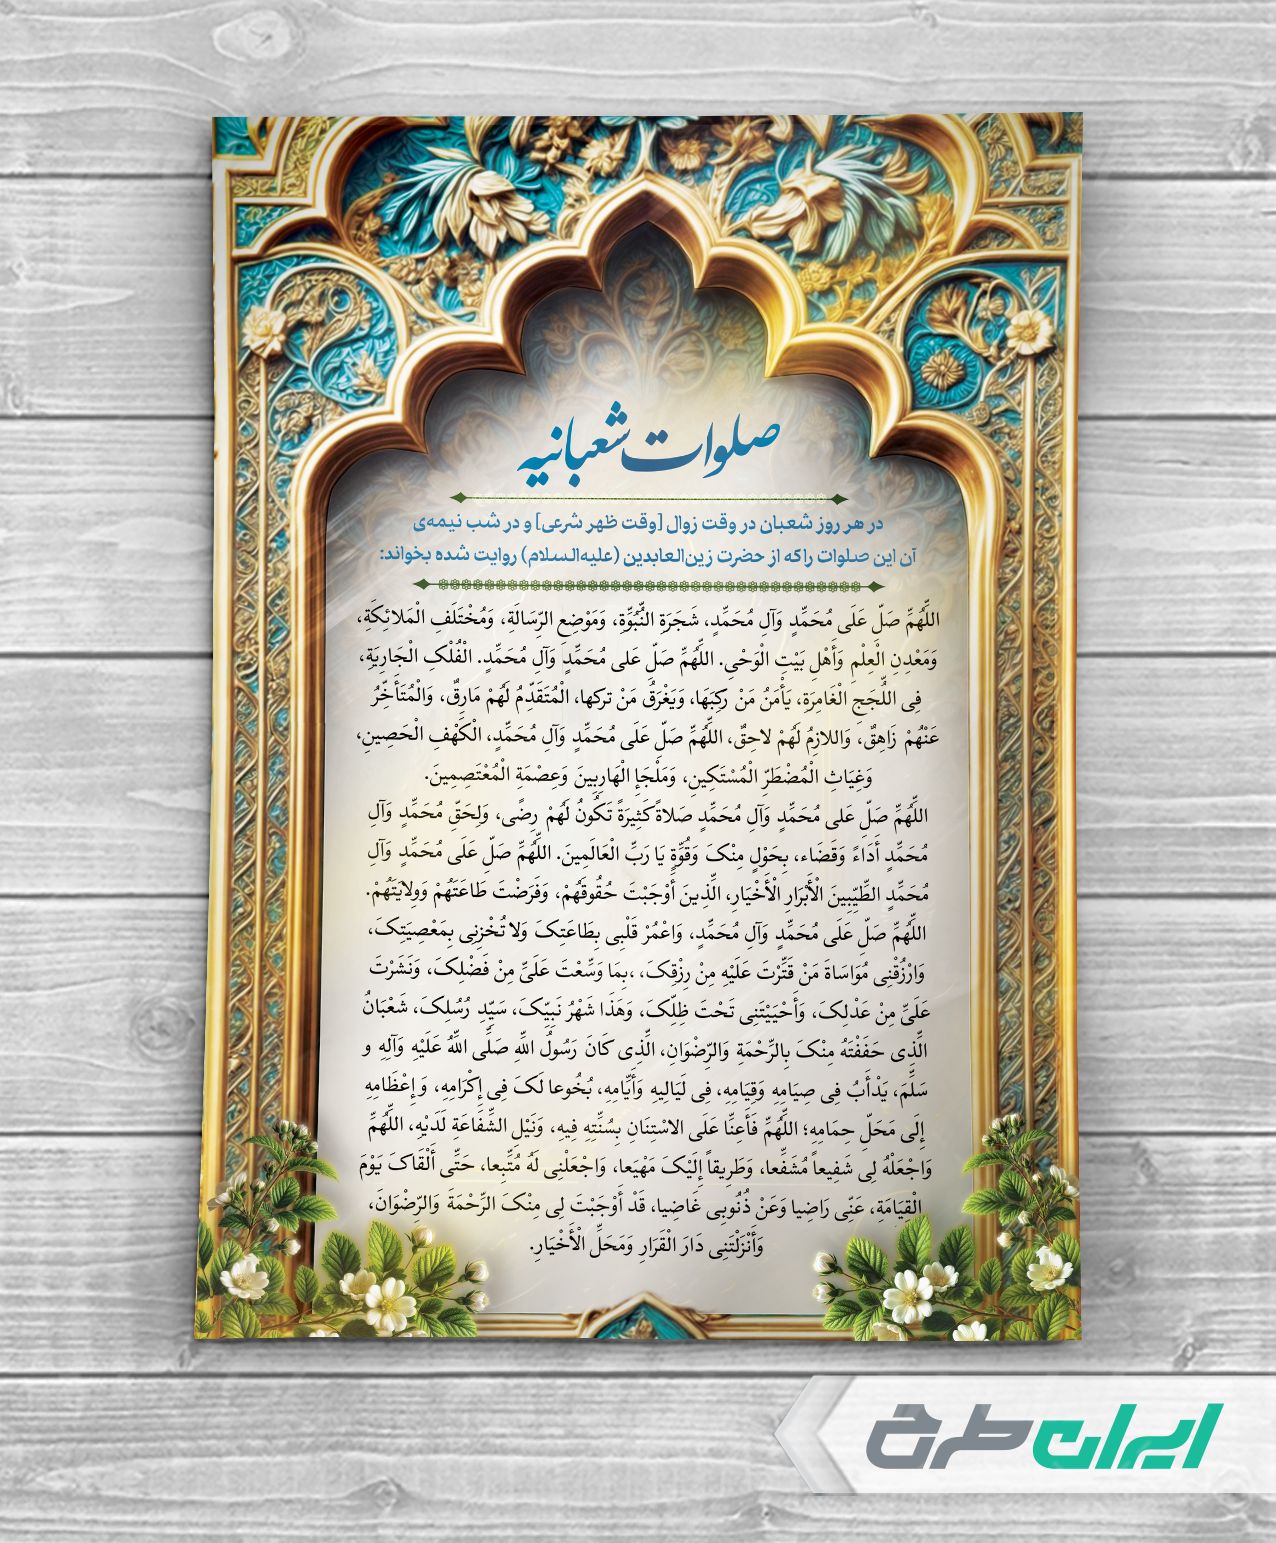 صلوات شعبانیه
در هر روز شعبان در وقت زوال [وقت ظهر شرعی] و در شب نیمه‌ی
آن این صلوات را که از حضرت زین‌العابدین (علیه‌السلام) روایت شده بخواند:
اللَّهُمَّ صَلِّ عَلَى مُحَمَّدٍ وَآلِ مُحَمَّدٍ، شَجَرَةِ النُّبُوَّةِ، وَمَوْضِعِ الرِّسَالَةِ، وَمُخْتَلَفِ الْمَلائِكَةِ،
وَمَعْدِنِ الْعِلْمِ وَأَهْلِ بَيْتِ الْوَحْىِ. اللَّهُمَّ صَلِّ عَلى مُحَمَّدٍ وَآلِ مُحَمَّدٍ. الْفُلْكِ الْجَارِيَةِ،
فِى اللُّجَجِ الْغَامِرَةِ، يَأْمَنُ مَنْ رَكِبَهَا، وَيَغْرَقُ مَنْ تركها، الْمُتَقَدِّمُ لَهُمْ مَارِقٌ، وَالْمُتَأَخِّرُ
عَنْهُمْ زَاهِقٌ، وَاللازِمُ لَهُمْ لاحِقٌ، اللَّهُمَّ صَلِّ عَلَى مُحَمَّدٍ وَآلِ مُحَمَّدٍ، الْكَهْفِ الْحَصِينِ،
وَغِيَاثِ الْمُضْطَرِّ الْمُسْتَكِينِ، وَمَلْجَإِ الْهَارِبِينَ وَعِصْمَةِ الْمُعْتَصِمِينَ.
اللَّهُمَّ صَلِّ عَلى مُحَمَّدٍ وَآلِ مُحَمَّدٍ صَلاةً كَثِيرَةً تَكُونُ لَهُمْ رِضًى، وَلِحَقِّ مُحَمَّدٍ وَآلِ
مُحَمَّدٍ أَدَاءً وَقَضَاء، بِحَوْلٍ مِنْكَ وَقُوَّةٍ يَا رَبَّ الْعَالَمِينَ. اللَّهُمَّ صَلِّ عَلَى مُحَمَّدٍ وَآلِ
مُحَمَّدٍ الطَّيِّبِينَ الْأَبْرَارِ الْأَخْيَارِ، الَّذِينَ أَوْجَبْتَ حُقُوقَهُمْ، وَفَرَضْتَ طَاعَتَهُمْ وَوِلايَتَهُمْ.
اللَّهُمَّ صَلِّ عَلَى مُحَمَّدٍ وَآلِ مُحَمَّدٍ، وَاعْمُرْ قَلْبِى بِطَاعَتِكَ وَلا تُخْزِنِى بِمَعْصِيَتِكَ،
وَارْزُقْنِى مُوَاسَاةَ مَنْ قَتَّرْتَ عَلَيْهِ مِنْ رِزْقِكَ، ،بِمَا وَسَّعْتَ عَلَىَّ مِنْ فَضْلِكَ، وَنَشَرْتَ
عَلَىَّ مِنْ عَدْلِكَ، وَأَحْيَيْتَنِى تَحْتَ ظِلِّكَ، وَهَذَا شَهْرُ نَبِيِّكَ، سَيِّدِ رُسُلِكَ، شَعْبَانُ
الَّذِى حَفَفْتَهُ مِنْكَ بِالرَّحْمَةِ وَالرِّضْوَانِ، الَّذِى كَانَ رَسُولُ اللَّهِ صَلَّى اللَّهُ عَلَيْهِ وَآلِهِ و
سَلَّمَ، يَدْأَبُ فِى صِيَامِهِ وَقِيَامِهِ، فِى لَيَالِيهِ وَأَيَّامِهِ، بُخُوعا لَكَ فِى إِكْرَامِهِ، وَ إِعْظَامِهِ
إِلَى مَحَلِّ حِمَامِهِ؛ اللَّهُمَّ فَأَعِنَّا عَلَى الاسْتِنَانِ بِسُنَّتِهِ فِيهِ، وَنَيْلِ الشَّفَاعَةِ لَدَيْهِ، اللَّهُمَّ
وَاجْعَلْهُ لِى شَفِيعاً مُشَفَّعا، وَطَرِيقاً إِلَيْكَ مَهْيَعا، وَاجْعَلْنِى لَهُ مُتَّبِعا، حَتَّى أَلْقَاكَ يَوْمَ
الْقِيَامَةِ، عَنِّى رَاضِيا وَعَنْ ذُنُوبِى غَاضِيا، قَدْ أَوْجَبْتَ لِى مِنْكَ الرَّحْمَةَ وَالرِّضْوَانَ،
وَأَنْزَلْتَنِى دَارَ الْقَرَارِ وَمَحَلَّ الْأَخْيَارِ.
ایران طرح